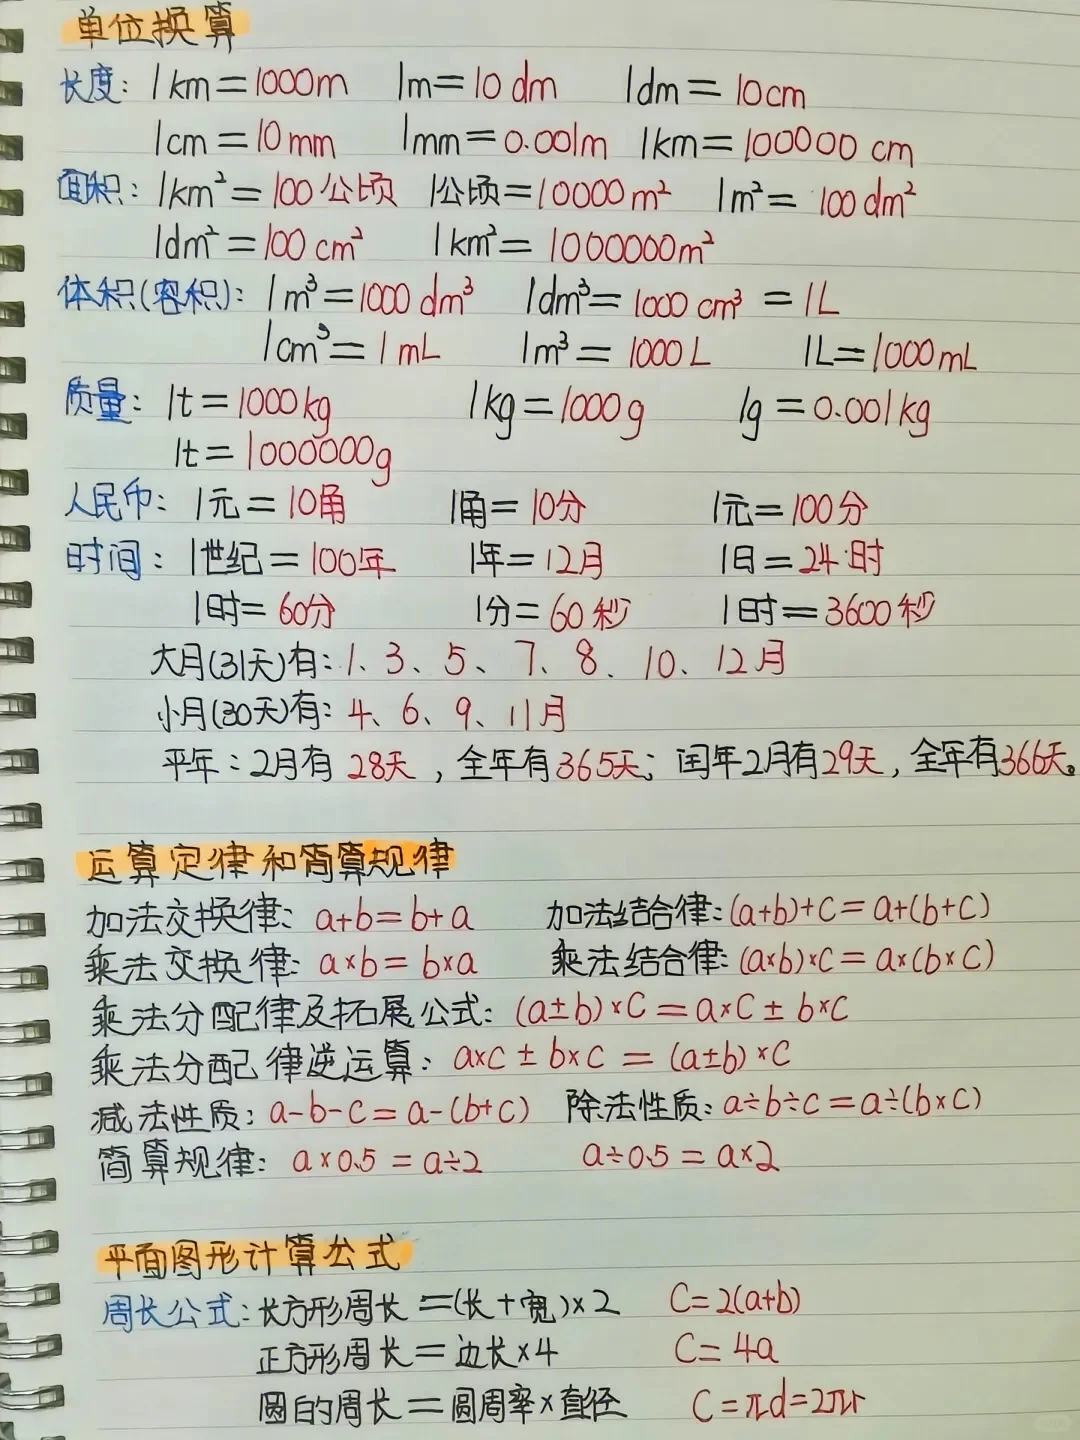 单位换算
长度: 1km=1000m 1m=10dm 1dm=10cm
1cm=10mm 1mm=0.001m 1km=100000cm
面积: 1km²=100公顷 1公顷=10000m² 1m²=100dm²
1dm²=100cm² 1km²=1000000m²
体积(容积): 1m³=1000dm³ 1dm³=1000cm³=1L
1cm³=1mL 1m³=1000L 1L=1000mL
质量: 1t=1000kg 1kg=1000g 1g=0.001kg
1t=1000000g
人民币: 1元=10角 1角=10分 1元=100分
时间: 1世纪=100年 1年=12月 1日=24时
1时=60分 1分=60秒 1时=3600秒
大月(31天)有: 1、3、5、7、8、10、12月
小月(30天)有: 4、6、9、11月
平年: 2月有28天, 全年有365天; 闰年2月有29天, 全年有366天。
运算定律和简算规律
加法交换律: a+b=b+a 加法结合律: (a+b)+c=a+(b+c)
乘法交换律: a×b=b×a 乘法结合律: (a×b)×c=a×(b×c)
乘法分配律及拓展公式: (a±b)×c=a×c±b×c
乘法分配律逆运算: a×c±b×c=(a±b)×c
减法性质: a-b-c=a-(b+c) 除法性质: a÷b÷c=a÷(b×c)
简算规律: a×0.5=a÷2 a÷0.5=a×2
平面图形计算公式
周长公式: 长方形周长=(长+宽)×2 C=2(a+b)
正方形周长=边长×4 C=4a
圆的周长=圆周率×直径 C=πd=2πr